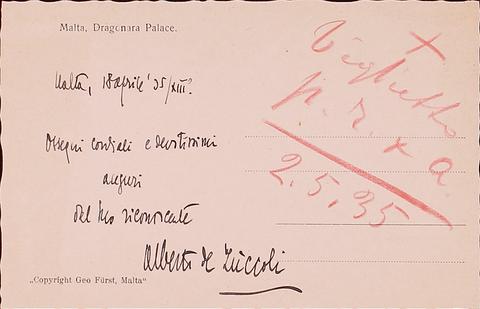 Malta, Dragonara Palace.
Malta, 18 aprile '35/XIII?
Ossequi cordiali e devotissimi
auguri
del suo riconoscente
Alberto de Zùccoli
„Copyright Geo Fürst, Malta"
Biglietto
p. r. x a.
2.5.35